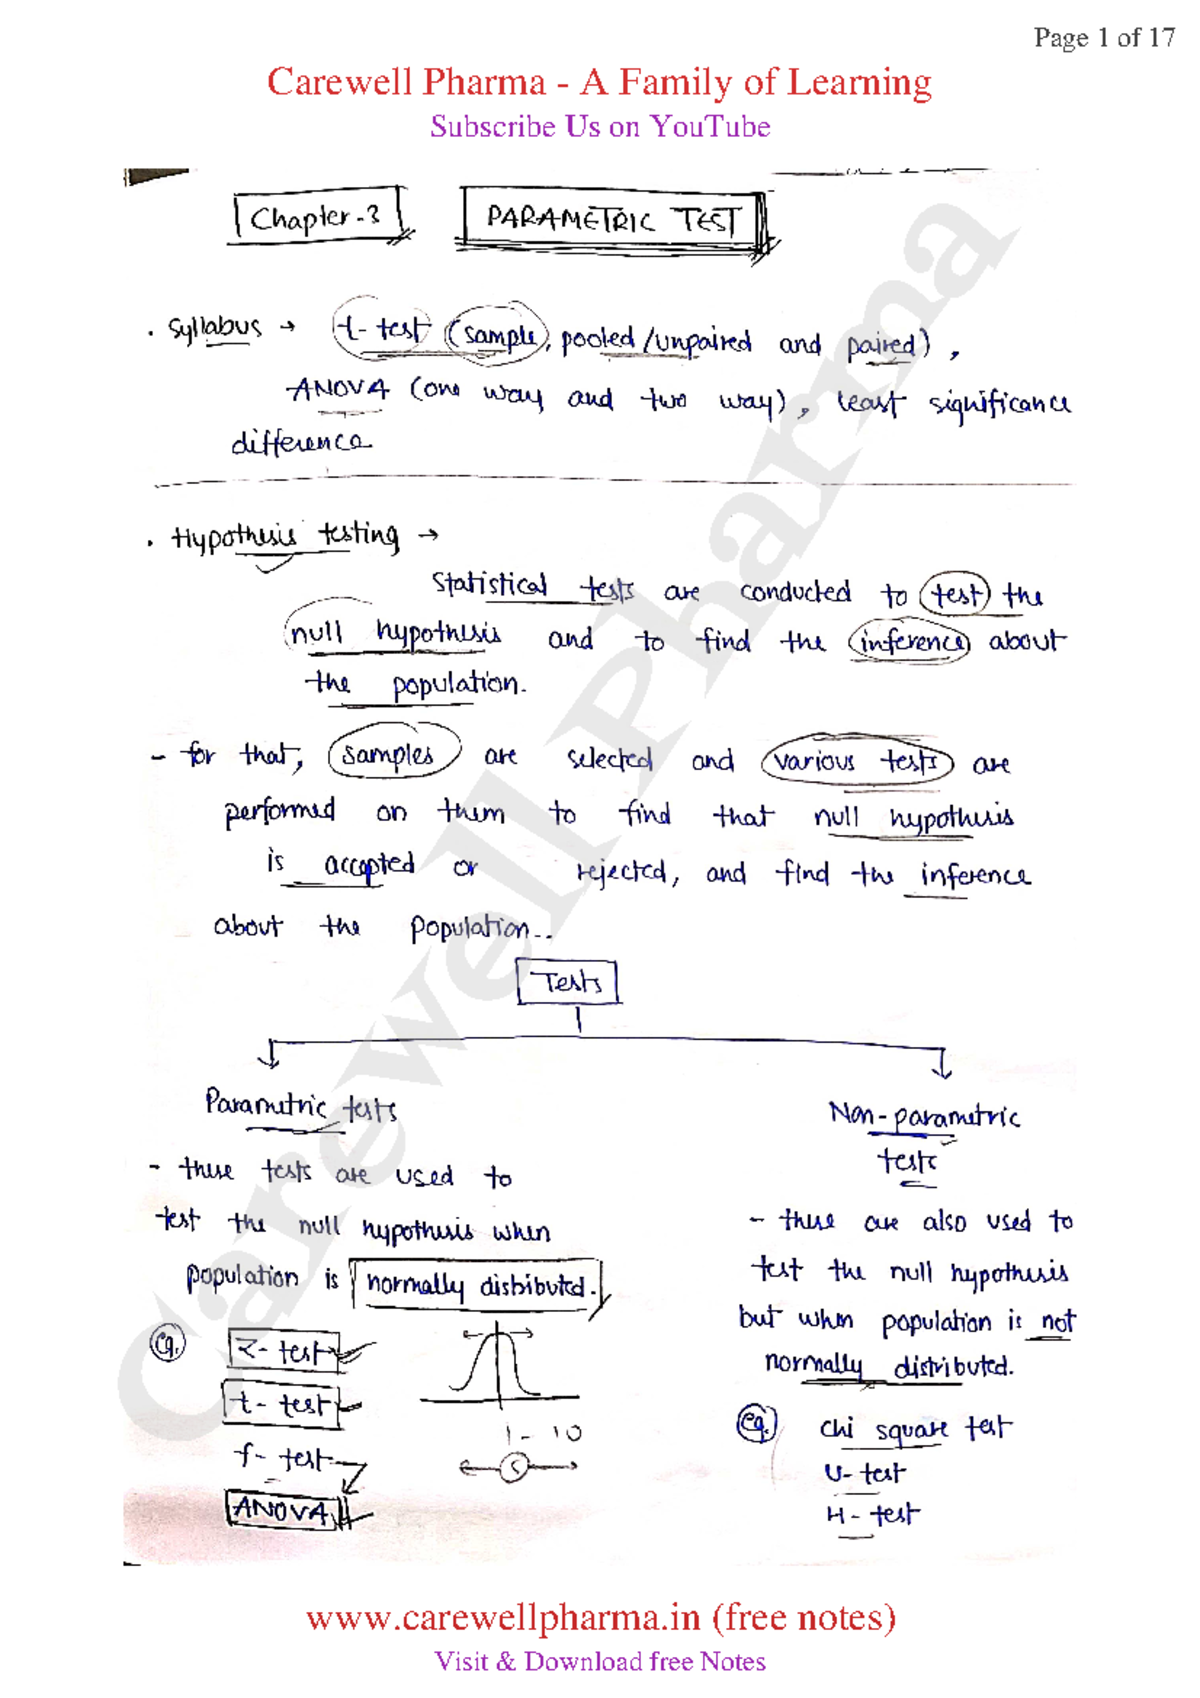 Page 1 of 17
Carewell Pharma - A Family of Learning
Subscribe Us on YouTube
Chapter-3 PARAMETRIC TEST
. Syllabus → t-test (sample, pooled/unpaired and paired),
ANOVA (one way and two way), least significance
difference
. Hypothesis testing →
Statistical tests are conducted to test the
null hypothesis and to find the inference about
the population.
- for that, samples are selected and various tests are
performed on them to find that null hypothesis
is accepted or rejected, and find the inference
about the population..
Tests
Parametric tests
- these tests are used to
test the null hypothesis when
population is normally distributed.
eg. z-test
t-test
f-test
ANOVA
1 - 10
5
Non-parametric
tests
- these are also used to
test the null hypothesis
but when population is not
normally distributed.
eg. Chi square test
U-test
H-test
Carewell Pharma
www.carewellpharma.in (free notes)
Visit & Download free Notes